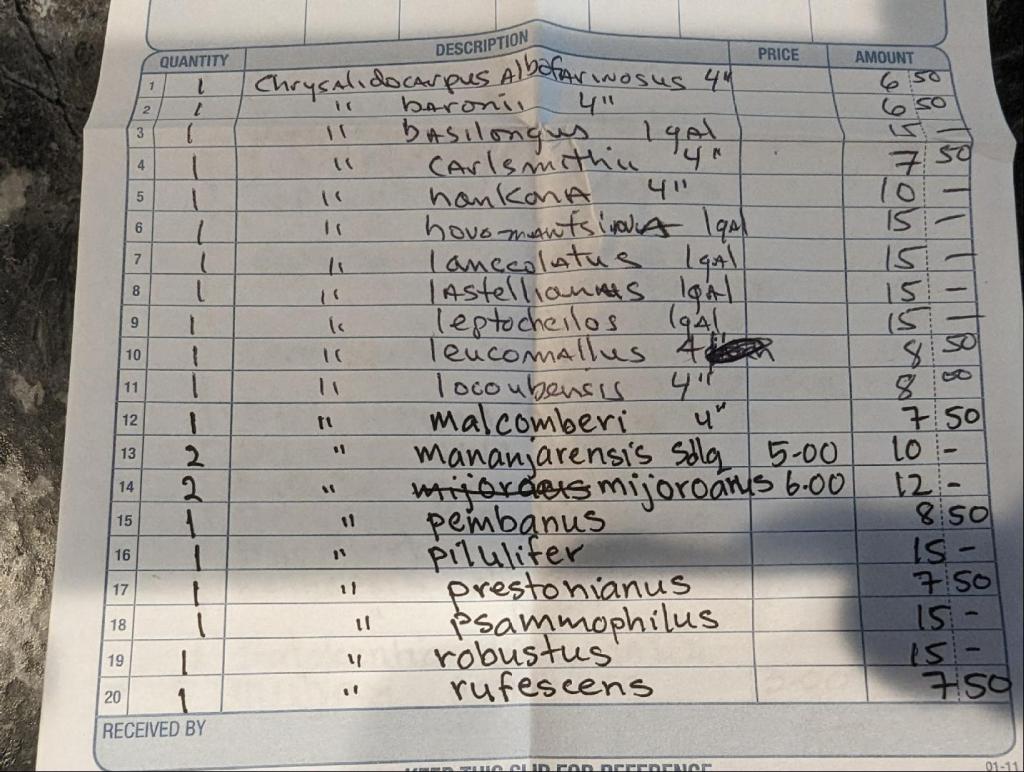 QUANTITY DESCRIPTION PRICE AMOUNT
1 1 Chrysalidocarpus Albofarinosus 4" 6 50
2 1 " baronii 4" 6 50
3 1 " basilongus 1 gal 15 —
4 1 " carlsmithii 4" 7 50
5 1 " hankona 4" 10 —
6 1 " hovomantsina 1 gal 15 —
7 1 " lanceolatus 1 gal 15 —
8 1 " lastellianus 1 gal 15 —
9 1 " leptocheilos 1 gal 15 —
10 1 " leucomallus 4" 8 50
11 1 " locoubensis 4" 8 00
12 1 " malcomberi 4" 7 50
13 2 " mananjarensis Sdlg 5-00 10 -
14 2 " mijoroanus 6.00 12 -
15 1 " pembanus 8 50
16 1 " pilulifer 15 -
17 1 " prestonianus 7 50
18 1 " psammophilus 15 -
19 1 " robustus 15 -
20 1 " rufescens 7 50
RECEIVED BY
KEEP THIS SLIP FOR REFERENCE
01-11